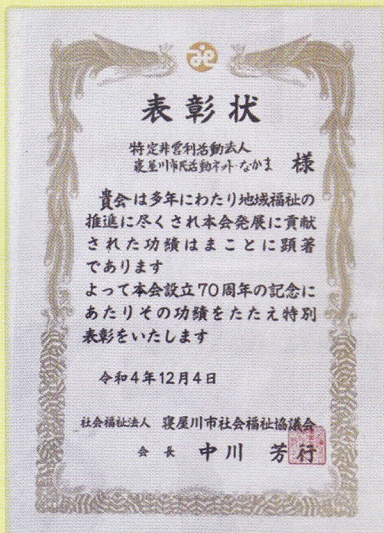 表彰状
特定非営利活動法人
寝屋川市民活動ネット・なかま 様
貴会は多年にわたり地域福祉の
推進に尽くされ本会発展に貢献
された功績はまことに顕著
であります
よって本会設立70周年の記念に
あたりその功績をたたえ特別
表彰をいたします
令和4年12月4日
社会福祉法人 寝屋川市社会福祉協議会
会長 中川 芳行